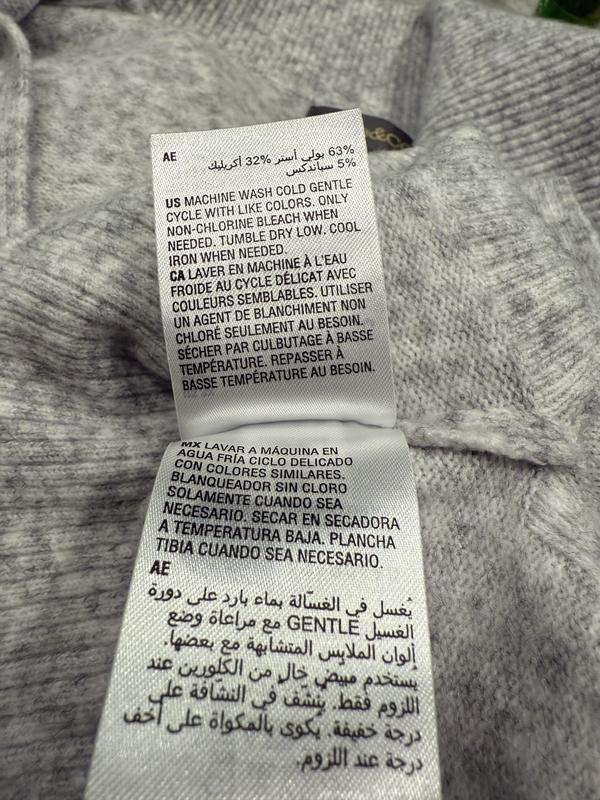 AE
63% بولي أستر 32% أكريليك
5% سباندكس
US MACHINE WASH COLD GENTLE
CYCLE WITH LIKE COLORS. ONLY
NON-CHLORINE BLEACH WHEN
NEEDED. TUMBLE DRY LOW. COOL
IRON WHEN NEEDED.
CA LAVER EN MACHINE À L'EAU
FROIDE AU CYCLE DÉLICAT AVEC
COULEURS SEMBLABLES. UTILISER
UN AGENT DE BLANCHIMENT NON
CHLORÉ SEULEMENT AU BESOIN.
SÉCHER PAR CULBUTAGE À BASSE
TEMPÉRATURE. REPASSER À
BASSE TEMPÉRATURE AU BESOIN.
MX LAVAR A MÁQUINA EN
AGUA FRÍA CICLO DELICADO
CON COLORES SIMILARES.
BLANQUEADOR SIN CLORO
SOLAMENTE CUANDO SEA
NECESARIO. SECAR EN SECADORA
A TEMPERATURA BAJA. PLANCHA
TIBIA CUANDO SEA NECESARIO.
AE
يُغسل في الغسّالة بماء بارد على دورة
الغسيل GENTLE مع مراعاة وضع
ألوان الملابس المتشابهة مع بعضها.
يستخدم مبيض خالٍ من الكلورين عند
اللزوم فقط. يُنشف في النشافة على
درجة خفيفة. يُكوى بالمكواة على أخف
درجة عند اللزوم.